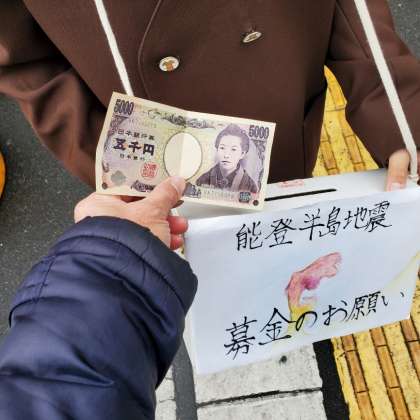 5000
5000
日本銀行券
五千円
日本銀行
能登半島地震
募金のお願い